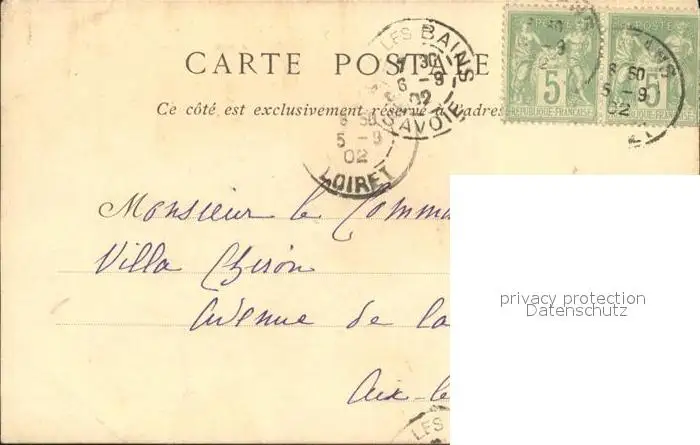 CARTE POSTALE
Ce côté est exclusivement réservé à l'adres
LES BAINS
7 30
6 - 9
02
SAVOIE
6 50
5 - 9
02
LOIRET
POSTE
5
REPUBLIQUE FRANÇAISE
6 50
5 - 9
02
5
Monsieur le Comma
Villa Chiron
Avenue de la
Aix-le
LES
privacy protection
Datenschutz